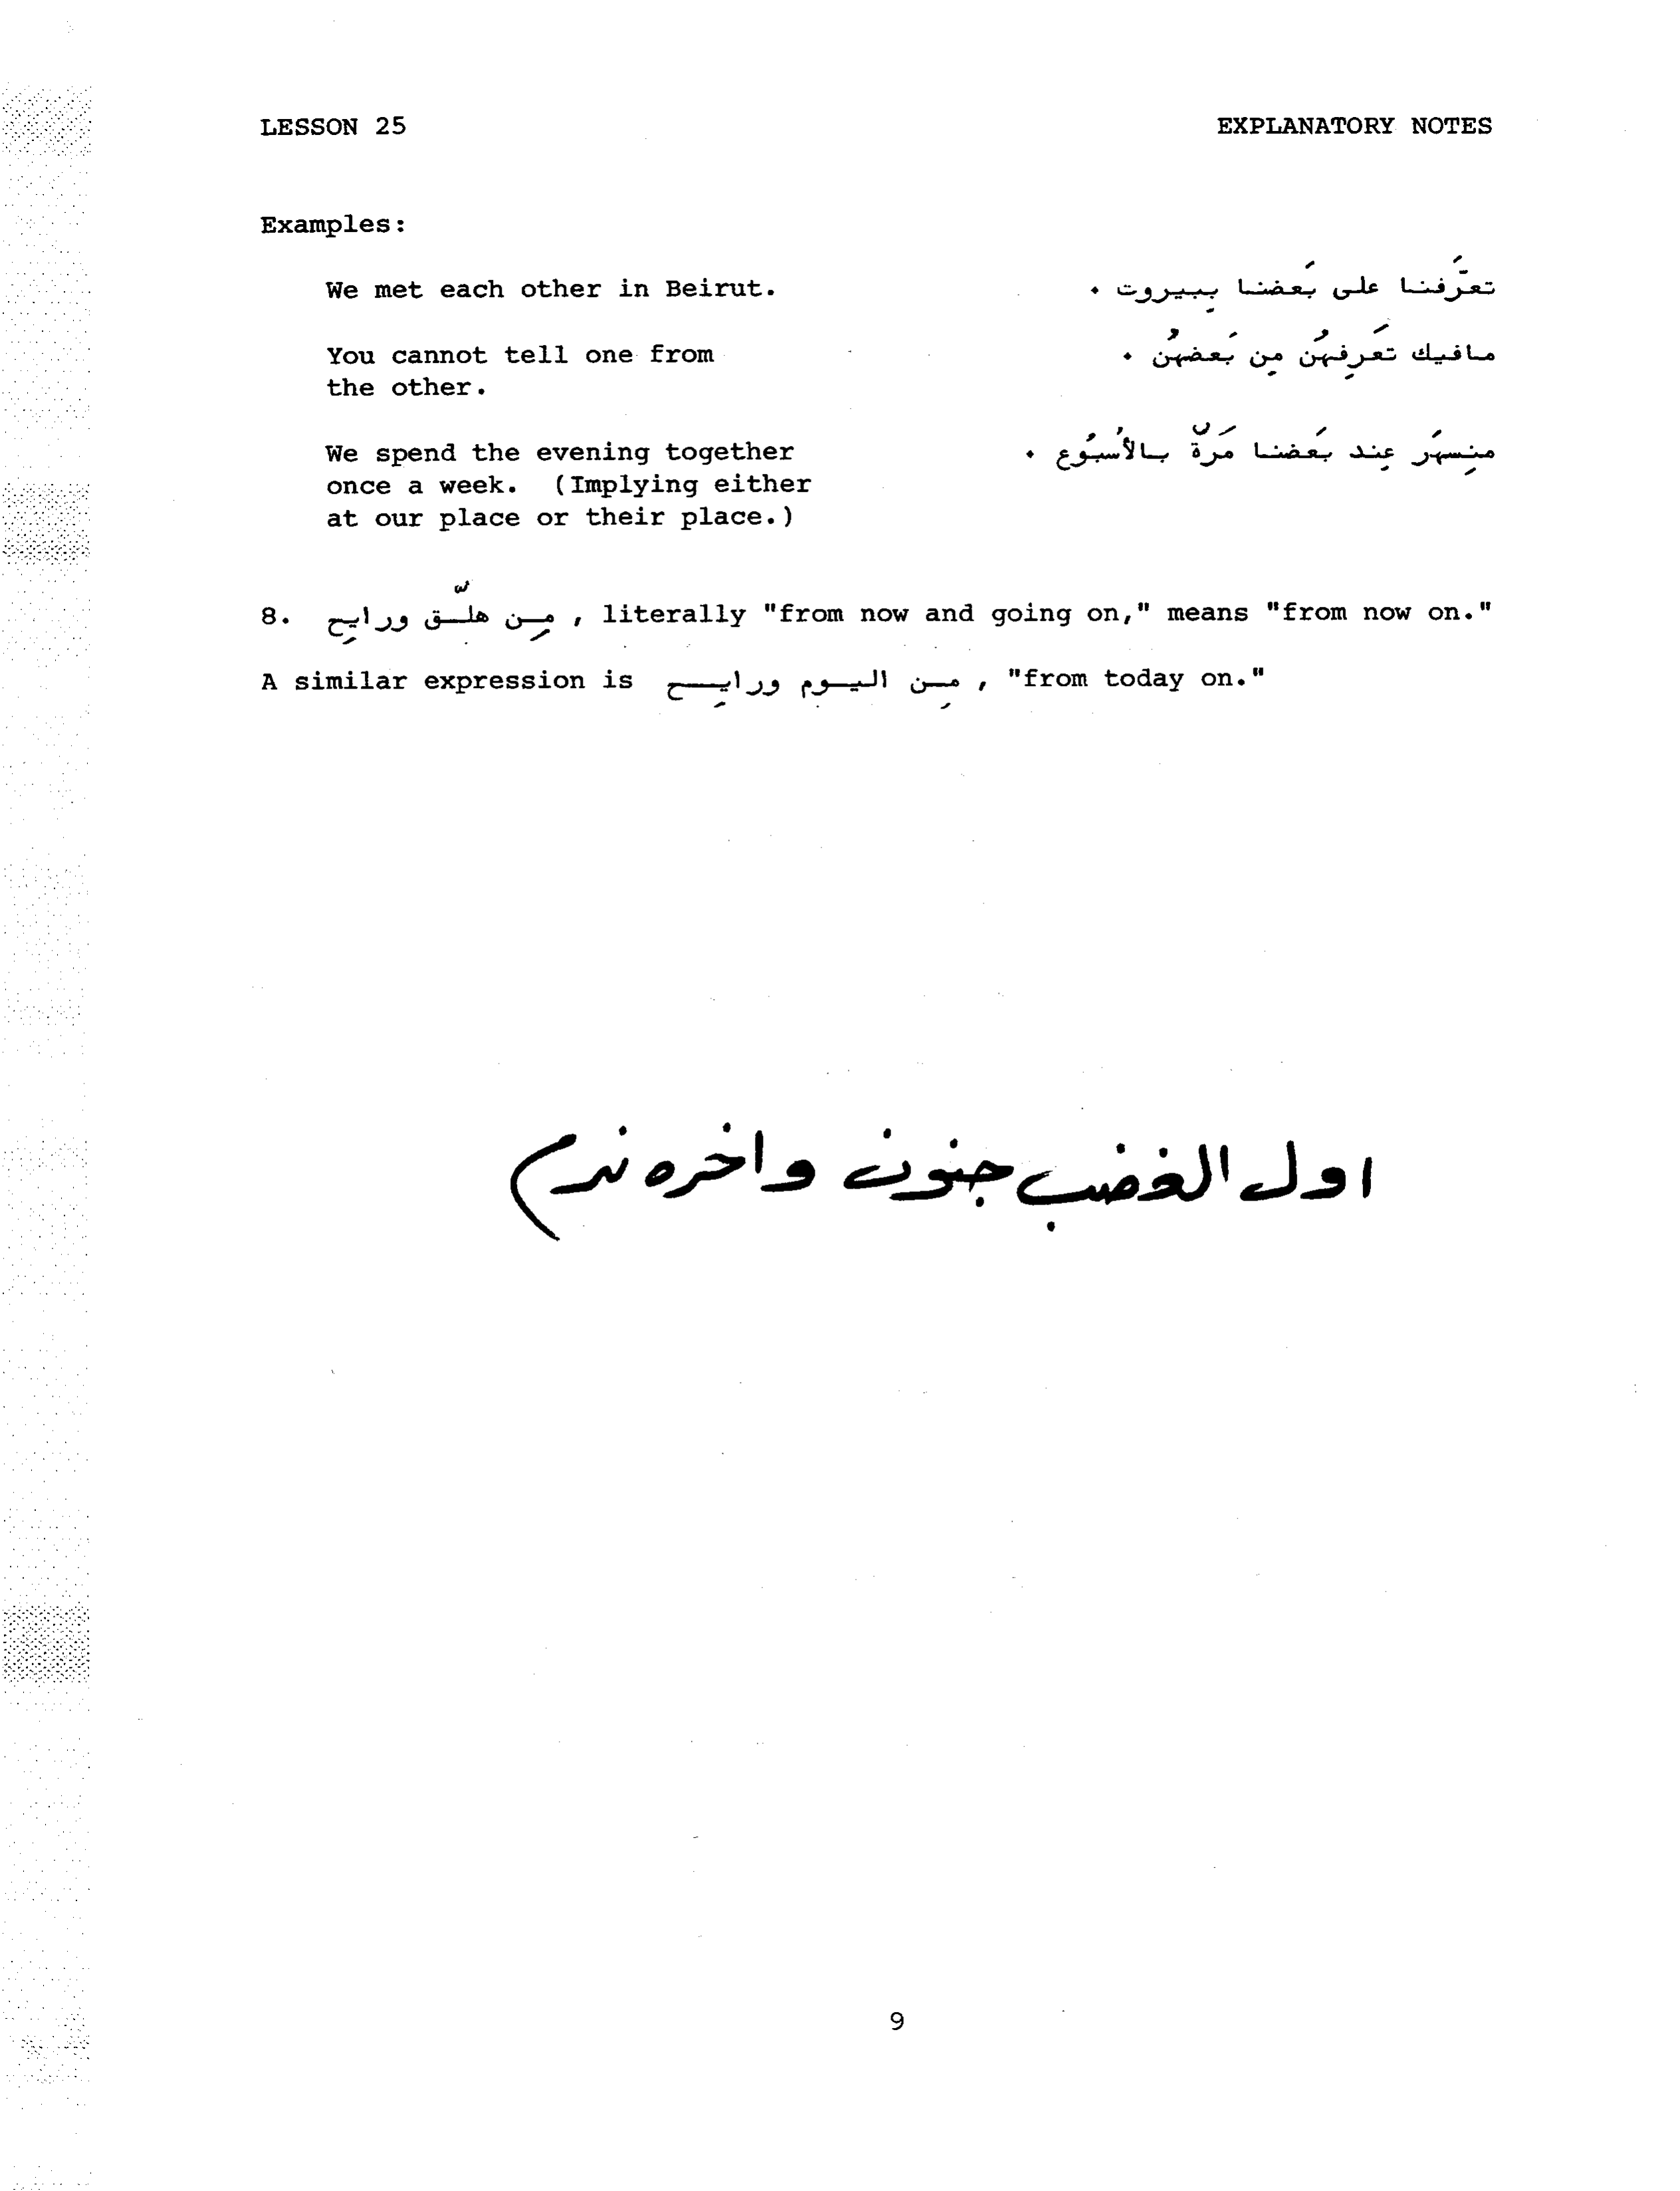 LESSON 25 EXPLANATORY NOTES
Examples:
We met each other in Beirut. تعَرَّفنا على بَعضنا بِبيروت .
You cannot tell one from مافيك تَعرِفهُن مِن بَعضهُن .
the other.
We spend the evening together منِسهَر عِند بَعضنا مَرّة بالأُسبُوع .
once a week. (Implying either
at our place or their place.)
8. مِن هلّق ورايِح , literally "from now and going on," means "from now on."
A similar expression is مِن اليوم ورايِح , "from today on."
اول الغضب جنون واخره ندم
9